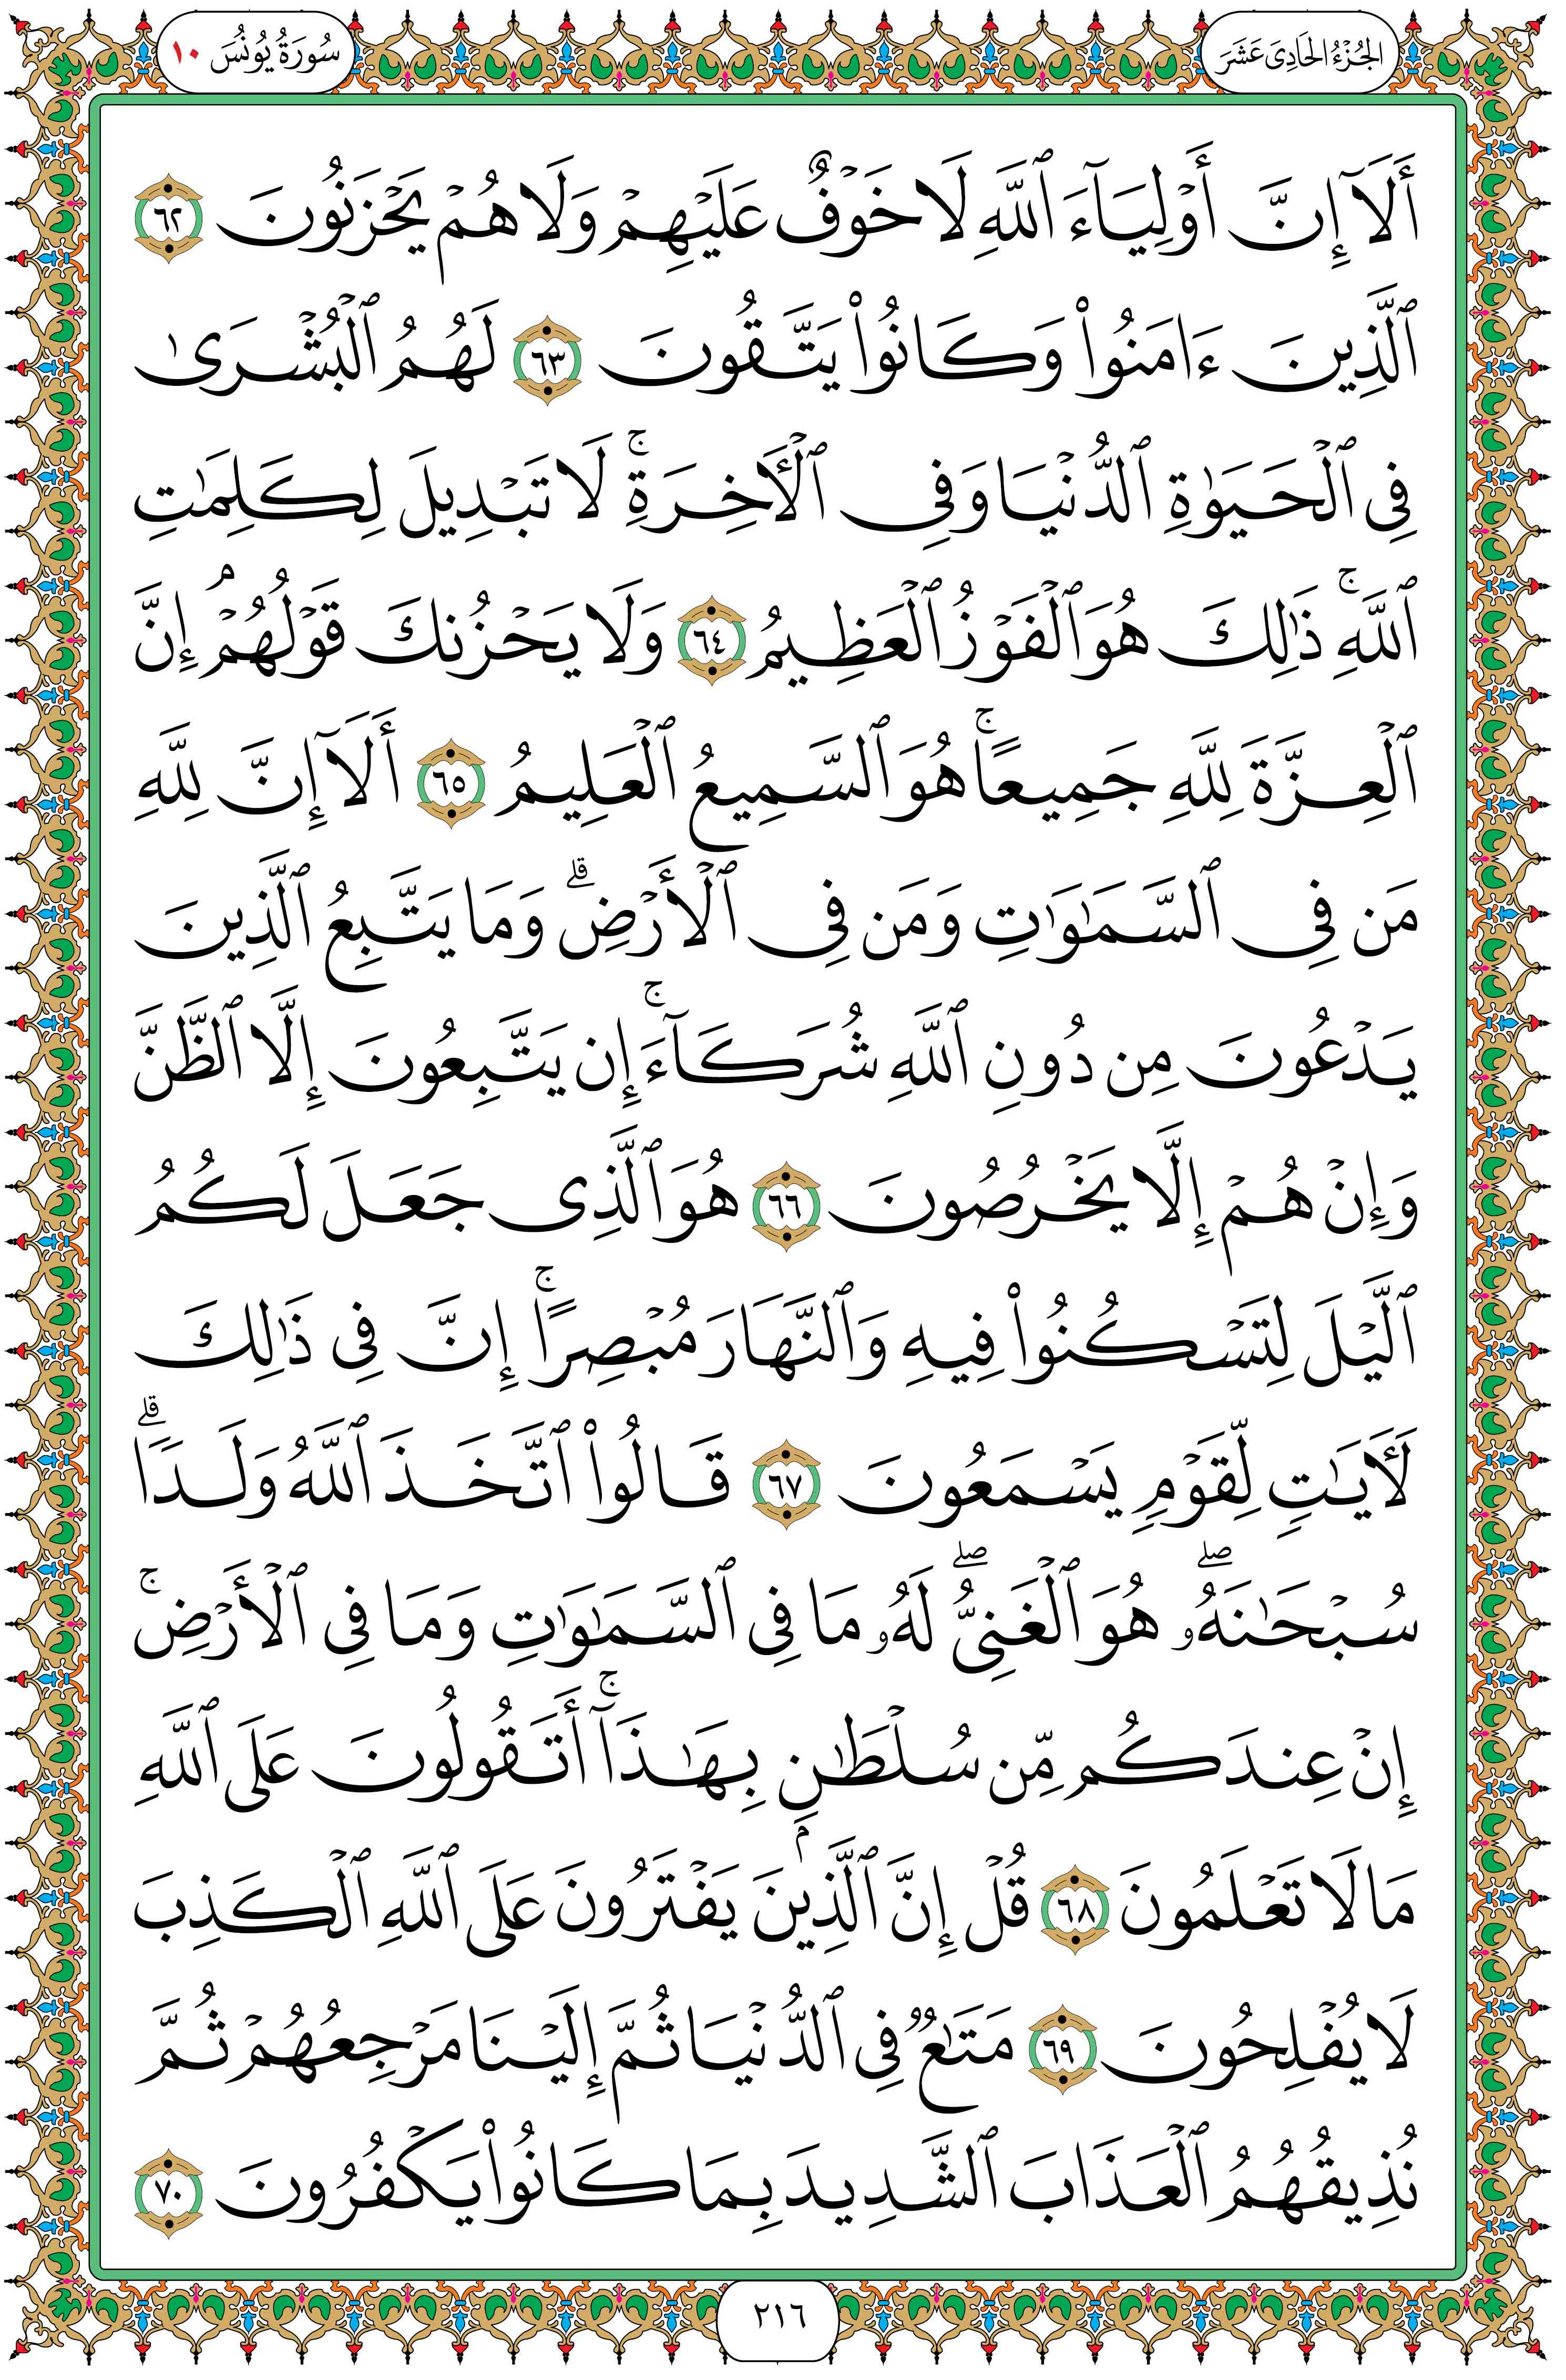 الجُزْءُ الحَادِيَ عَشَرَ
سُورَةُ يُونُسَ ١٠
أَلَآ إِنَّ أَوْلِيَآءَ ٱللَّهِ لَا خَوْفٌ عَلَيْهِمْ وَلَا هُمْ يَحْزَنُونَ ٦٢
ٱلَّذِينَ ءَامَنُوا۟ وَكَانُوا۟ يَتَّقُونَ ٦٣ لَهُمُ ٱلْبُشْرَىٰ
فِى ٱلْحَيَوٰةِ ٱلدُّنْيَا وَفِى ٱلْأَخِرَةِ ۚ لَا تَبْدِيلَ لِكَلِمَٰتِ
ٱللَّهِ ۚ ذَٰلِكَ هُوَ ٱلْفَوْزُ ٱلْعَظِيمُ ٦٤ وَلَا يَحْزُنكَ قَوْلُهُمْ ۘ إِنَّ
ٱلْعِزَّةَ لِلَّهِ جَمِيعًا ۚ هُوَ ٱلسَّمِيعُ ٱلْعَلِيمُ ٦٥ أَلَآ إِنَّ لِلَّهِ
مَن فِى ٱلسَّمَٰوَٰتِ وَمَن فِى ٱلْأَرْضِ ۗ وَمَا يَتَّبِعُ ٱلَّذِينَ
يَدْعُونَ مِن دُونِ ٱللَّهِ شُرَكَآءَ ۚ إِن يَتَّبِعُونَ إِلَّا ٱلظَّنَّ
وَإِنْ هُمْ إِلَّا يَخْرُصُونَ ٦٦ هُوَ ٱلَّذِى جَعَلَ لَكُمُ
ٱلَّيْلَ لِتَسْكُنُوا۟ فِيهِ وَٱلنَّهَارَ مُبْصِرًا ۚ إِنَّ فِى ذَٰلِكَ
لَأَيَٰتٍ لِّقَوْمٍ يَسْمَعُونَ ٦٧ قَالُوا۟ ٱتَّخَذَ ٱللَّهُ وَلَدًا ۗ
سُبْحَٰنَهُۥ ۖ هُوَ ٱلْغَنِىُّ ۖ لَهُۥ مَا فِى ٱلسَّمَٰوَٰتِ وَمَا فِى ٱلْأَرْضِ ۚ
إِنْ عِندَكُم مِّن سُلْطَٰنٍۭ بِهَٰذَآ ۚ أَتَقُولُونَ عَلَى ٱللَّهِ
مَا لَا تَعْلَمُونَ ٦٨ قُلْ إِنَّ ٱلَّذِينَ يَفْتَرُونَ عَلَى ٱللَّهِ ٱلْكَذِبَ
لَا يُفْلِحُونَ ٦٩ مَتَٰعٌ فِى ٱلدُّنْيَا ثُمَّ إِلَيْنَا مَرْجِعُهُمْ ثُمَّ
نُذِيقُهُمُ ٱلْعَذَابَ ٱلشَّدِيدَ بِمَا كَانُوا۟ يَكْفُرُونَ ٧٠
٢١٦